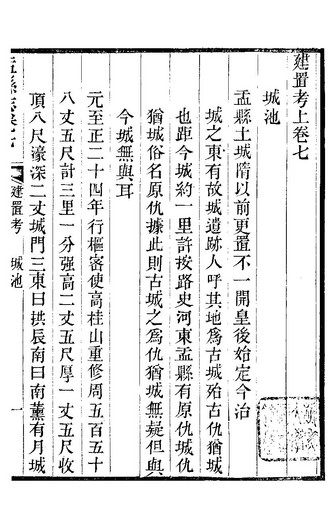 建置考上卷七
城池
盂縣土城隋以前更置不一開皇後始定今治
城之東有故城遺跡人呼其地爲古城殆古仇猶城
也距今城約一里許按路史河東盂縣有原仇城仇
猶城俗名原仇據此則古城之爲仇猶城無疑但與
今城無與耳
元至正二十四年行樞密使高桂山重修周五百五十
八丈五尺計三里一分强高二丈五尺厚一丈五尺收
頂八尺濠深二丈城門三東曰拱辰南曰南薰有月城
建置考
城池
一